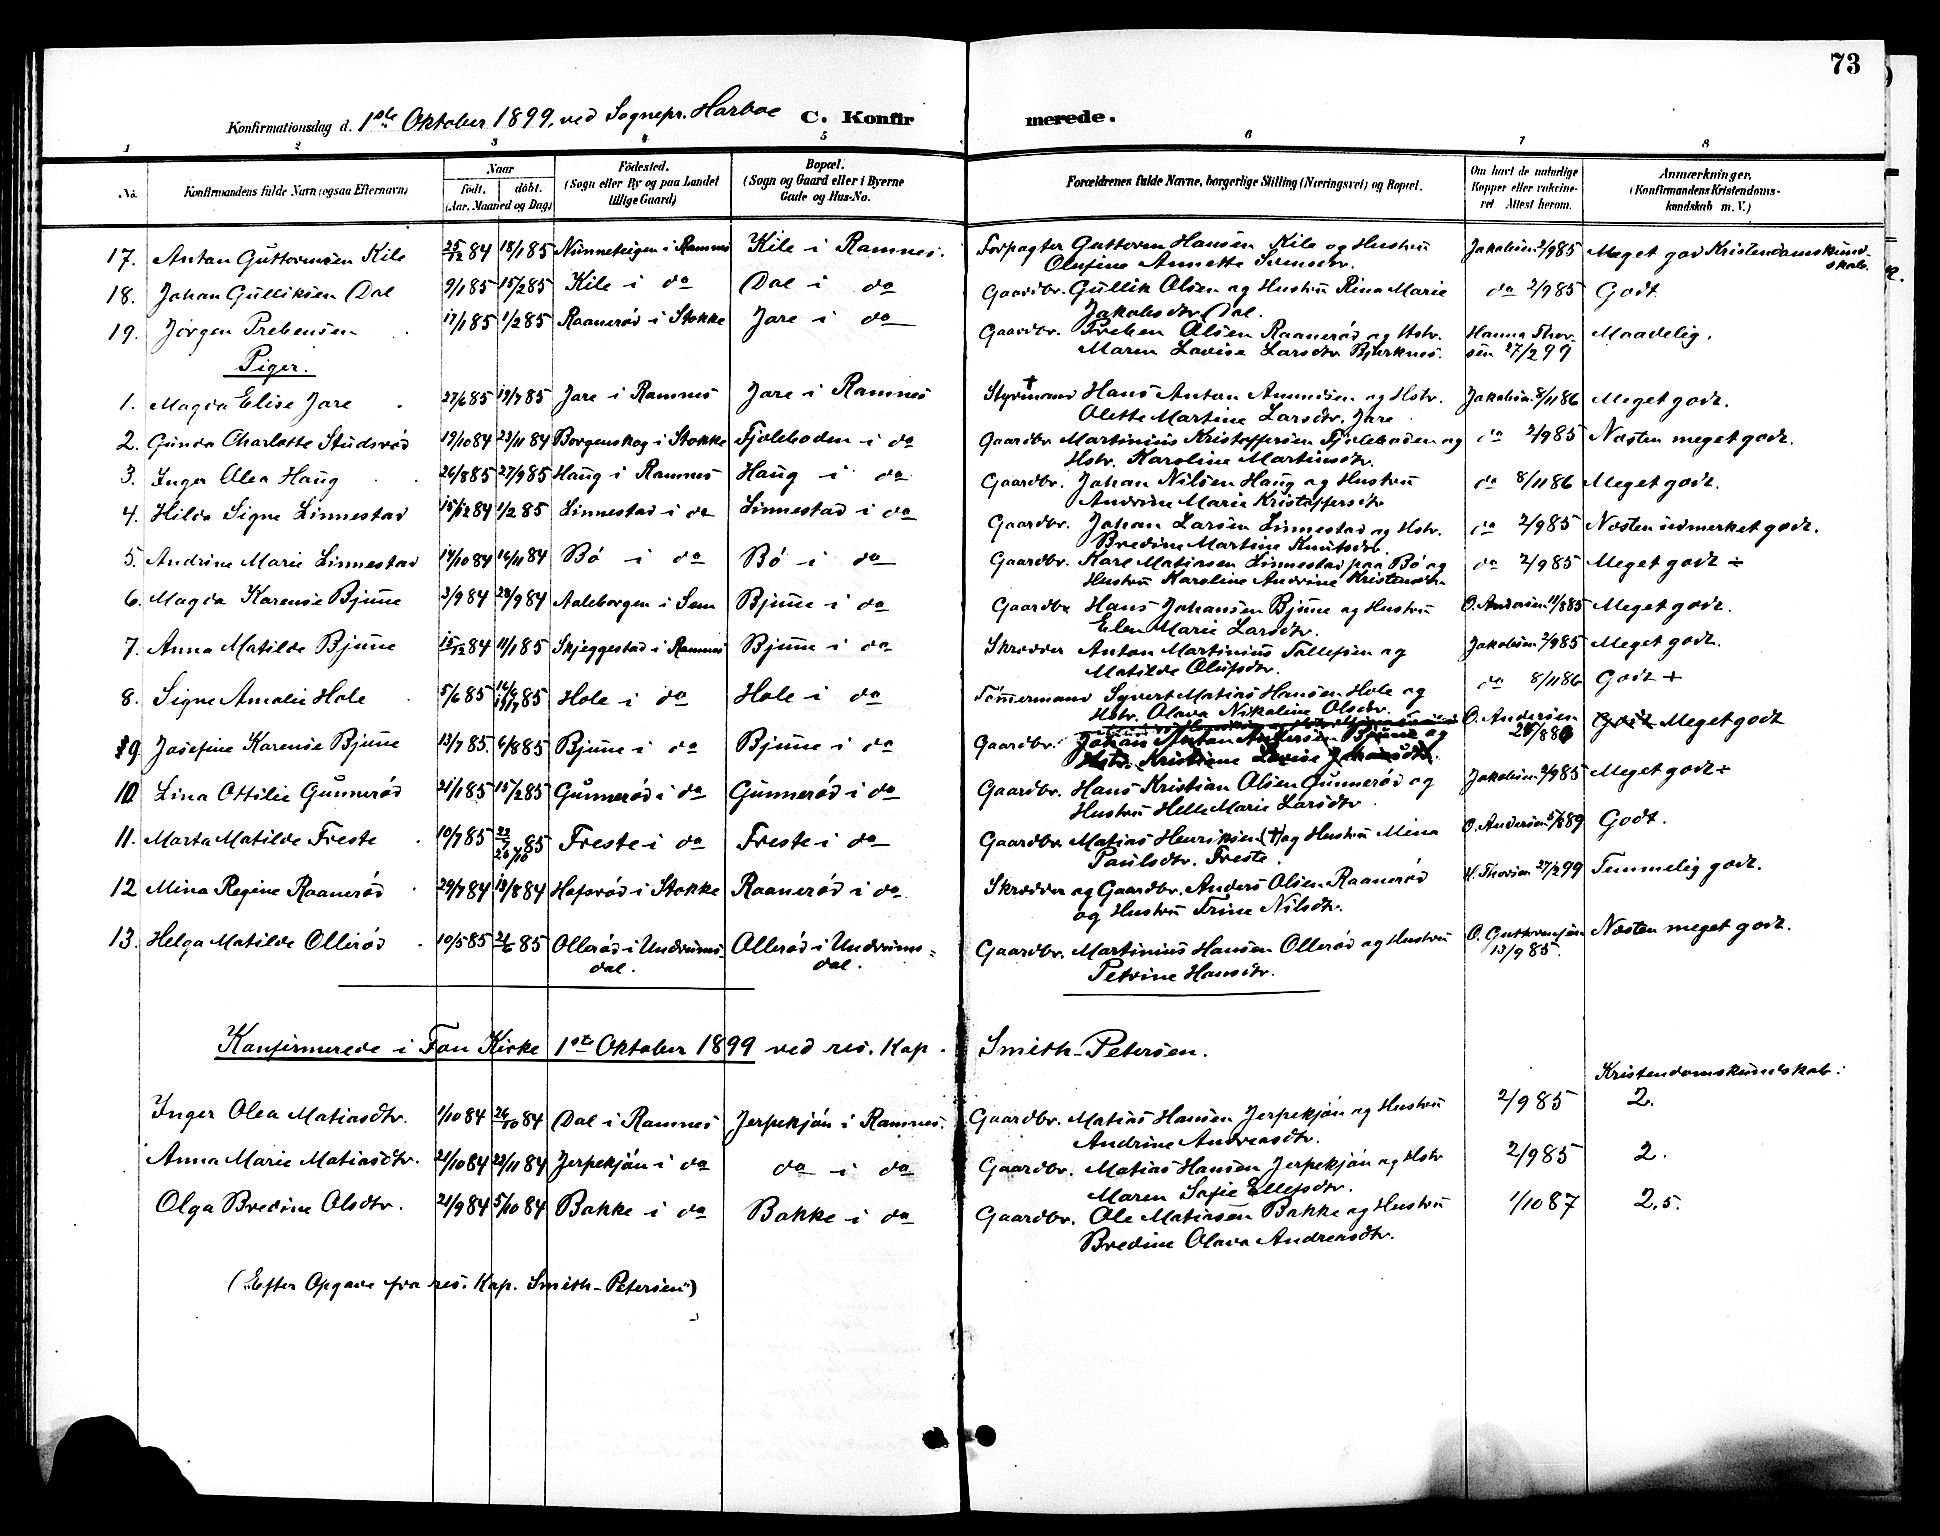 73
Konfirmationsdag d. 1ste Oktober 1899, ved Sognepr. Harboe C. Konfirmerede.
1 2 3 4 5 6 7 8
No. Konfirmandens fulde Navn (ogsaa Efternavn) Naar født. døbt. (Aar, Maaned og Dag) Fødested. (Sogn eller By og paa Landet tillige Gaard) Bopæl. (Sogn og Gaard eller i Byerne Gade og Hus-No. Forældrenes fulde Navne, borgerlige Stilling (Næringsvei) og Bopæl. Om havt de naturlige Kopper eller vakcineret Attest herom. Anmærkninger. (Konfirmandens Kristendomskundskab m. V.)
17. Anton Guttormsen Kile 25/12 84 18/1 85 Nunneteigen i Ramnes Kile i Ramnes. Forpagter Guttorm Hansen Kile og Hustru Jakobsen 2/9 85 Meget god Kristendomskund-
Olufine Annette Svensdtr. skab.
18. Johan Gulliksen Dal 9/1 85 15/2 85 Kile i do Dal i do Gaardbr. Gullik Olsen og Hustru Rina Marie do 2/9 85 Godt
Jakobsdtr Dal.
19. Jørgen Prebensen 17/1 85 1/2 85 Raanerød i Stokke Jare i do Gaardbr. Preben Olsen Raanerød og Hstr. Hanna Thor- Maadelig.
Maren Lovise Larsdtr Bjerknes. sen 27/2 99
Piger.
1. Magda Elise Jare 27/6 85 19/7 85 Jare i Ramnes Jare i Ramnes Styrmand † Hans Anton Amundsen og Hstr. Jakobsen 8/11 86 Meget godt.
Olette Martine Larsdtr. Jare
2. Gunda Charlotte Studsrød 19/10 84 23/11 84 Borgenskog i Stokke Fjoleboden i do Gaardbr Martinius Kristoffersen Fjoleboden og do 2/9 85 Næsten meget godt.
Hstr. Karoline Martinsdtr.
3. Inger Olea Haug 26/8 85 27/9 85 Haug i Ramnes Haug i do Gaardbr. Johan Nilsen Haug og Hustru do 8/11 86 Meget godt.
Andrine Marie Kristoffersdtr
4. Hilda Signe Linnestad 15/12 84 1/2 85 Linnestad i do Linnestad i do Gaardbr. Johan Larsen Linnestad og Hstr. do 2/9 85 Næsten udmerket godt.
Bredine Martine Knutsdtr.
5. Andrine Marie Linnestad 14/10 84 16/11 84 Bø i do Bø i do Gaardbr. Karl Matiasen Linnestad paa Bø og do 2/9 85 Meget godt ÷
Hustru Karoline Andrine Kristensdtr.
6. Magda Karense Bjune 3/9 84 28/9 84 Aaleborgen i Sem Bjune i do Gaardbr Hans Johansen Bjune og Hustru O. Andersen 11/8 85 Meget godt.
Elen Marie Larsdtr.
7. Anna Matilde Bjune 15/12 84 11/1 85 Skjeggestad i Ramnes Bjune i do Skrædder Anton Martinius Tollefsen og Jakobsen 2/9 85 Meget godt.
Matilde Olufsdtr.
8. Signe Amalie Hole 5/6 85 19/7 85 Hole i do Hole i do Tømmermand Syvert Matias Hansen Hole og do 8/11 86 Godt +
Hstr. Olava Nikoline Olsdtr.
9 Josefine Karense Bjune 13/7 85. 6/8 85 Bjune i do Bjune i do Gaardbr. Johan Anton Andersen Bjune og O. Andersen Godt Meget godt
Hstr. Kristiane Lovise Johansdtr.
10 Lina Ottilie Gunnerød 21/1 85 15/2 85 Gunnerød i do Gunnerød i do Gaardbr. Hans Kristian Olsen Gunnerød og Jakobsen 2/9 85 Meget godt ÷
Hustru Helle Marie Larsdtr.
11. Marta Matilde Freste 10/7 85 85 Freste i do Freste i do Gaardbr. Matias Henriksen (†) og Hustru Mina O. Andersen 5/8 89 Godt.
Paulsdtr. Freste.
12 Mina Regine Raanerød 29/7 84 84 Hafsrød i Stokke Raanerød i do Skrædder og Gaardbr. Anders Olsen Raanerød H. Thorsen 27/2 99 Temmelig godt.
og Hustru Trine Nilsdtr.
13. Helga Matilde Ollerød 10/5 85 21/6 85 Ollerød i Undrums- Ollerød i Undrums- Gaardbr. Martinius Hansen Ollerød og Hustru O. Guttormsen Næsten meget godt.
dal. dal. Petrine Hansdtr. 13/9 85.
Konfirmerede i Fon Kirke 1ste Oktober 1899 ved res. Kap. Smith-Petersen.
Kristendomskundskab:
Inger Olea Matiasdtr. 1/10 84 26/10 84 Dal i Ramnes Jerpekjøn i Ramnes. Gaardbr. Matias Hansen Jerpekjøn og Hustru 2/9 85 2.
Andrine Andreasdtr.
Anna Marie Matiasdtr. 21/10 84 23/11 84 Jerpekjøn i do do i do Gaardbr. Matias Hansen Jerpekjøn og Hstr 2/9 85 2.
Maren Sofie Ellefsdtr.
Olga Bredine Olsdtr. 21/9 84 5/10 84 Bakke i do Bakke i do Gaardbr. Ole Matiasen Bakke og Hustru 1/10 87 2.5.
Bredine Olava Andreasdtr.
(Efter Opgave fra res. Kap. Smith-Petersen)